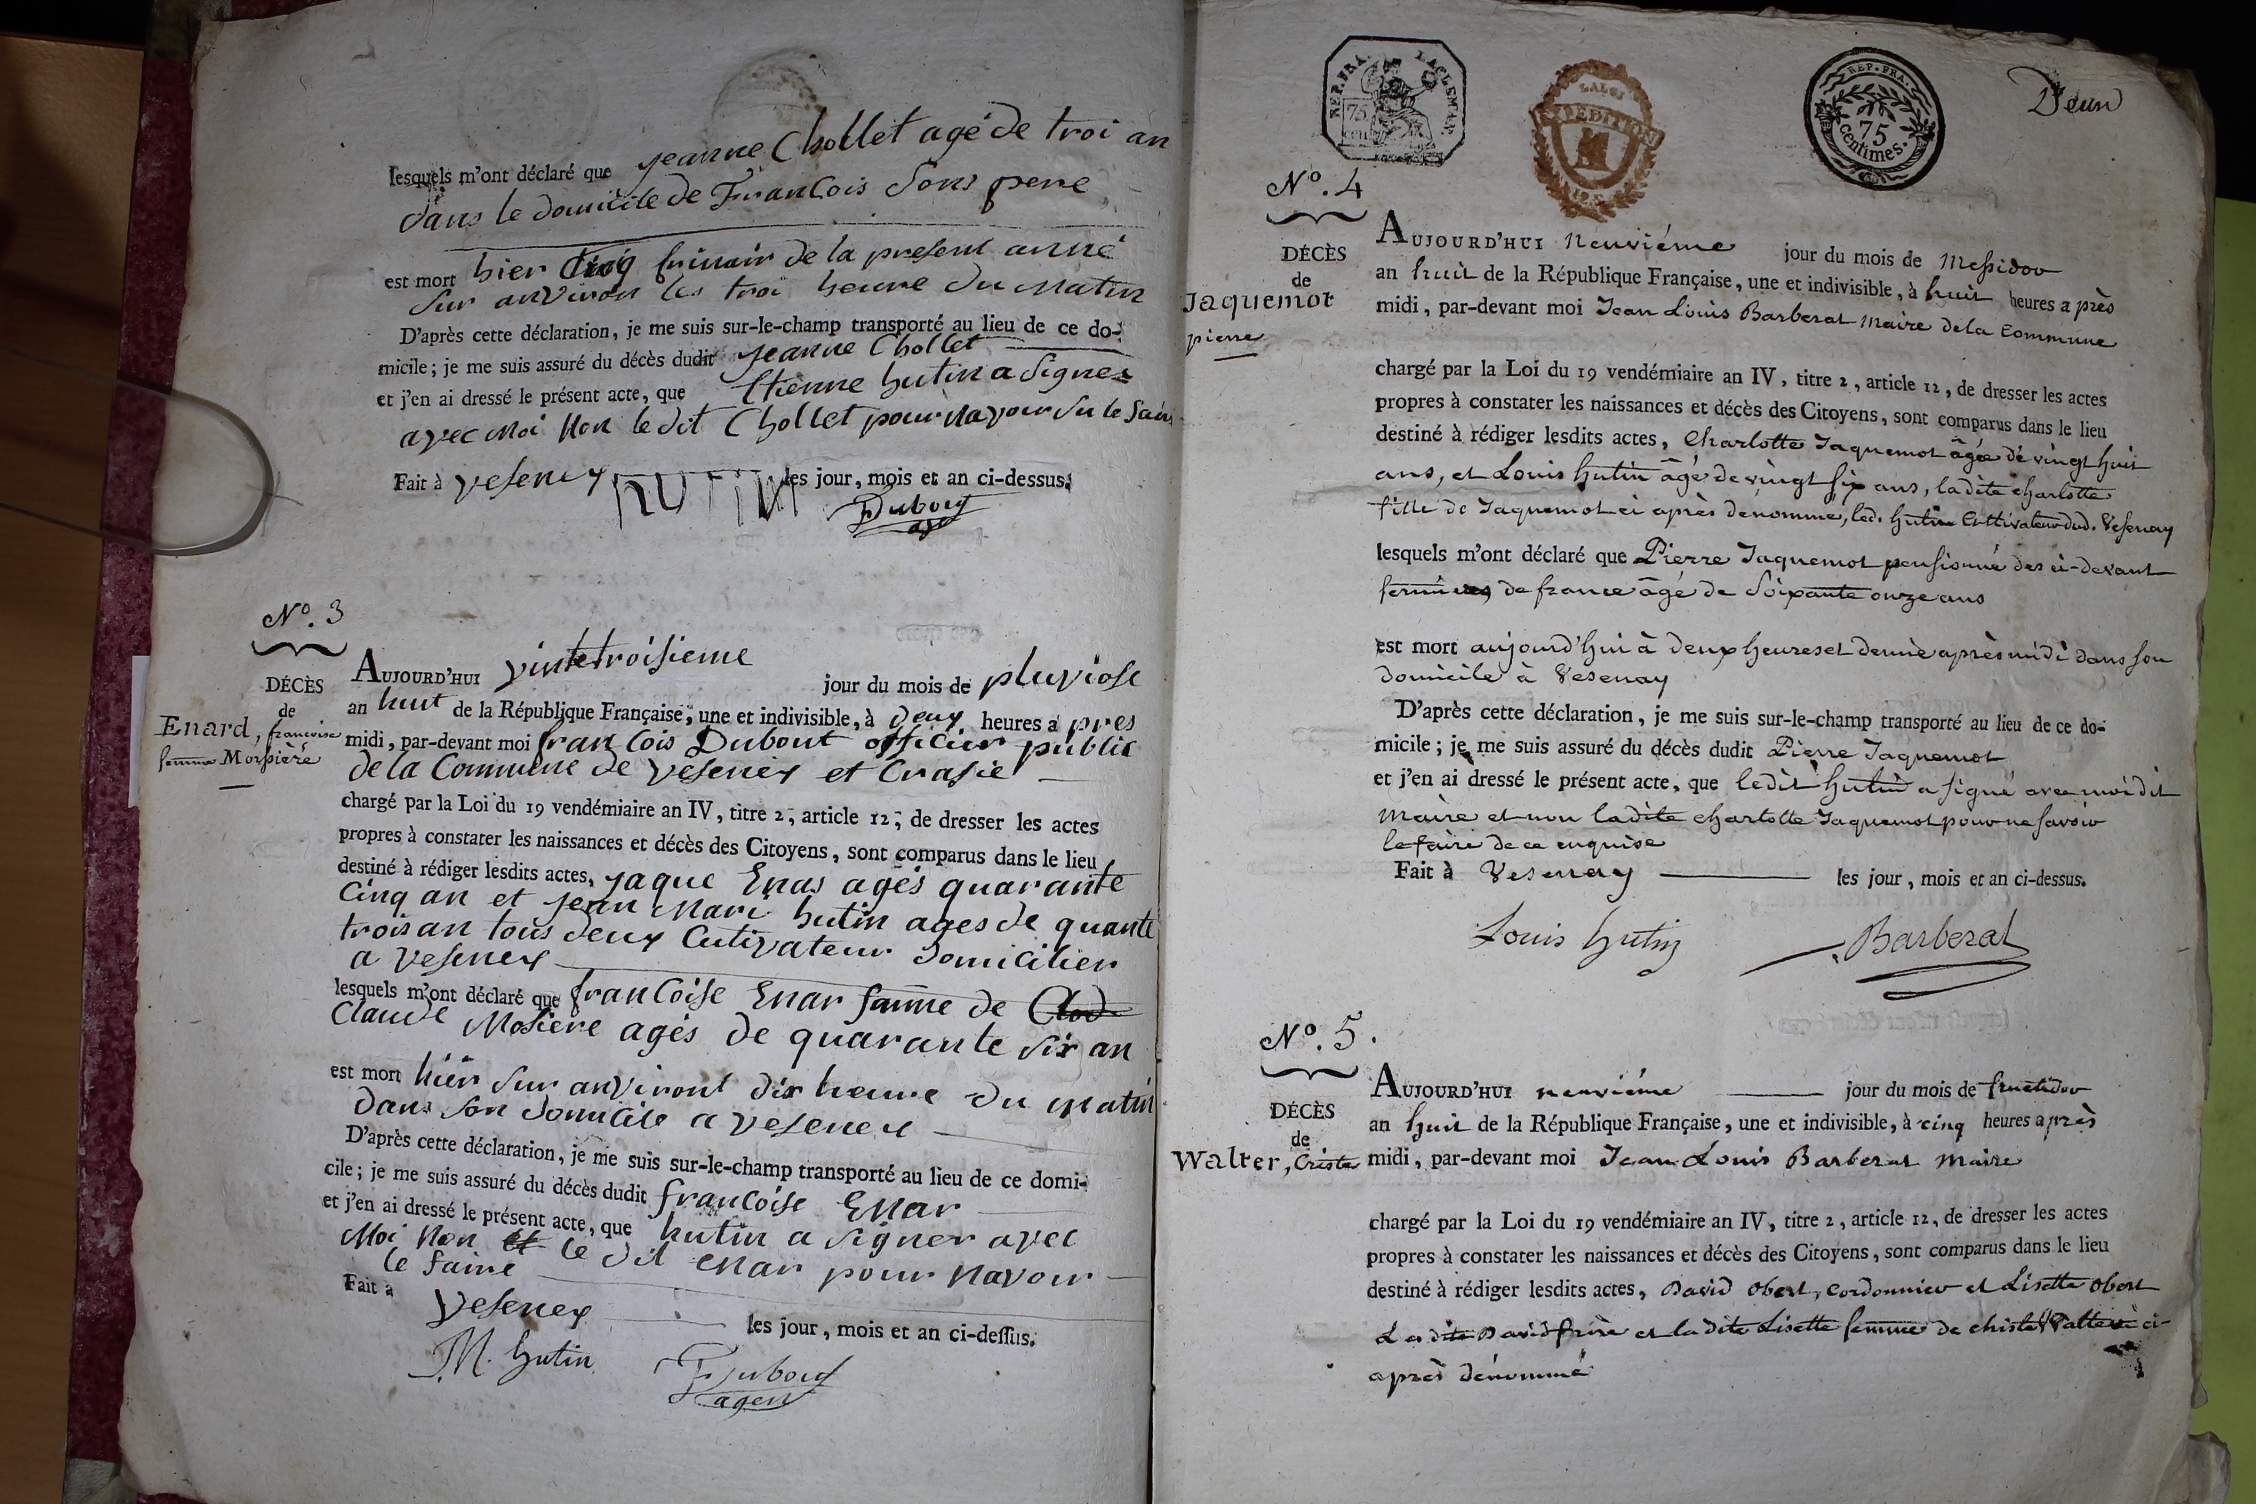 lesquels m'ont déclaré que jeanne Chollet agé de troi an
dans le domicile de François Sons pere
est mort hier Cinq frimair de la present anné
sur anviron les troi heure du Matin
D'après cette déclaration, je me suis sur-le-champ transporté au lieu de ce do-
micile; je me suis assuré du décès dudit jeanne Chollet
et j'en ai dressé le présent acte, que Etienne hutin a Signer
avec Moi Non le dit Chollet pour navoir su le
Fait à vesenex les jour, mois et an ci-dessus.
HUTIN
Dubout
agt
N°. 3
DÉCÈS
de
Enard, francoise
femme Morsière
AUJOURD'HUI vintetroisieme jour du mois de pluviose
an huit de la République Française, une et indivisible, à deux heures a pres
midi, par-devant moi francois Dubout officier public
de la Commune de Vesenex et Crasie
chargé par la Loi du 19 vendémiaire an IV, titre 2, article 12, de dresser les actes
propres à constater les naissances et décès des Citoyens, sont comparus dans le lieu
destiné à rédiger lesdits actes, jaque Enas agés quarante
Cinq an et jean Mari hutin ages de quante
trois an tous deux Cutivateur domicilier
a vesenex
lesquels m'ont déclaré que francoise Enar famme de Clod
Claude Mosiere agés de quarante six an
est mort hier sur anviront dix heure du matin
dans son domicile a vesenex
D'après cette déclaration, je me suis sur-le-champ transporté au lieu de ce domi-
cile; je me suis assuré du décès dudit francoise Enar
et j'en ai dressé le présent acte, que hutin a signer avec
Moi Non et le dit enar pour navoir
le faire
Fait à vesenex les jour, mois et an ci-dessus.
M. hutin
Dubout
agent
REP. FRA.
75
LALOI
EXPEDITION
REP. FRA.
75
centimes.
Deun
N°. 4
DÉCÈS
de
Jaquemot
pierre
AUJOURD'HUI neuviéme jour du mois de Messidor
an huit de la République Française, une et indivisible, à huit heures a près
midi, par-devant moi Jean Louis Barberat Maire de la Commune
chargé par la Loi du 19 vendémiaire an IV, titre 2, article 12, de dresser les actes
propres à constater les naissances et décès des Citoyens, sont comparus dans le lieu
destiné à rédiger lesdits actes, Charlotte Jaquemot âgée de vingt huit
ans, et Louis hutin âgé de vingt six ans, ladite charlotte
fille de Jaquemot ci après dénommé, led. hutin Cultivateur dud. Vesenay
lesquels m'ont déclaré que Pierre Jaquemot pensionné des ci-devant
fermiers de france âgé de Soixante onze ans
est mort aujourd'hui à deux heures et demie après midi dans son
domicile à Vesenay
D'après cette déclaration, je me suis sur-le-champ transporté au lieu de ce do-
micile; je me suis assuré du décès dudit Pierre Jaquemot
et j'en ai dressé le présent acte, que ledit hutin a signé avec moi dit
Maire et non ladite charlotte Jaquemot pour ne savoir
le faire de ce enquise
Fait à Vesenay les jour, mois et an ci-dessus.
Louis hutin Barberat
N°. 5.
DÉCÈS
de
Walter, Criste
AUJOURD'HUI neuviéme jour du mois de fructidor
an huit de la République Française, une et indivisible, à cinq heures après
midi, par-devant moi Jean Louis Barberat Maire
chargé par la Loi du 19 vendémiaire an IV, titre 2, article 12, de dresser les actes
propres à constater les naissances et décès des Citoyens, sont comparus dans le lieu
destiné à rédiger lesdits actes, David obert, cordonnier et Lisette obert
Ledite David frère et ladite Lisette femme de christe Walter ci-
après dénommé